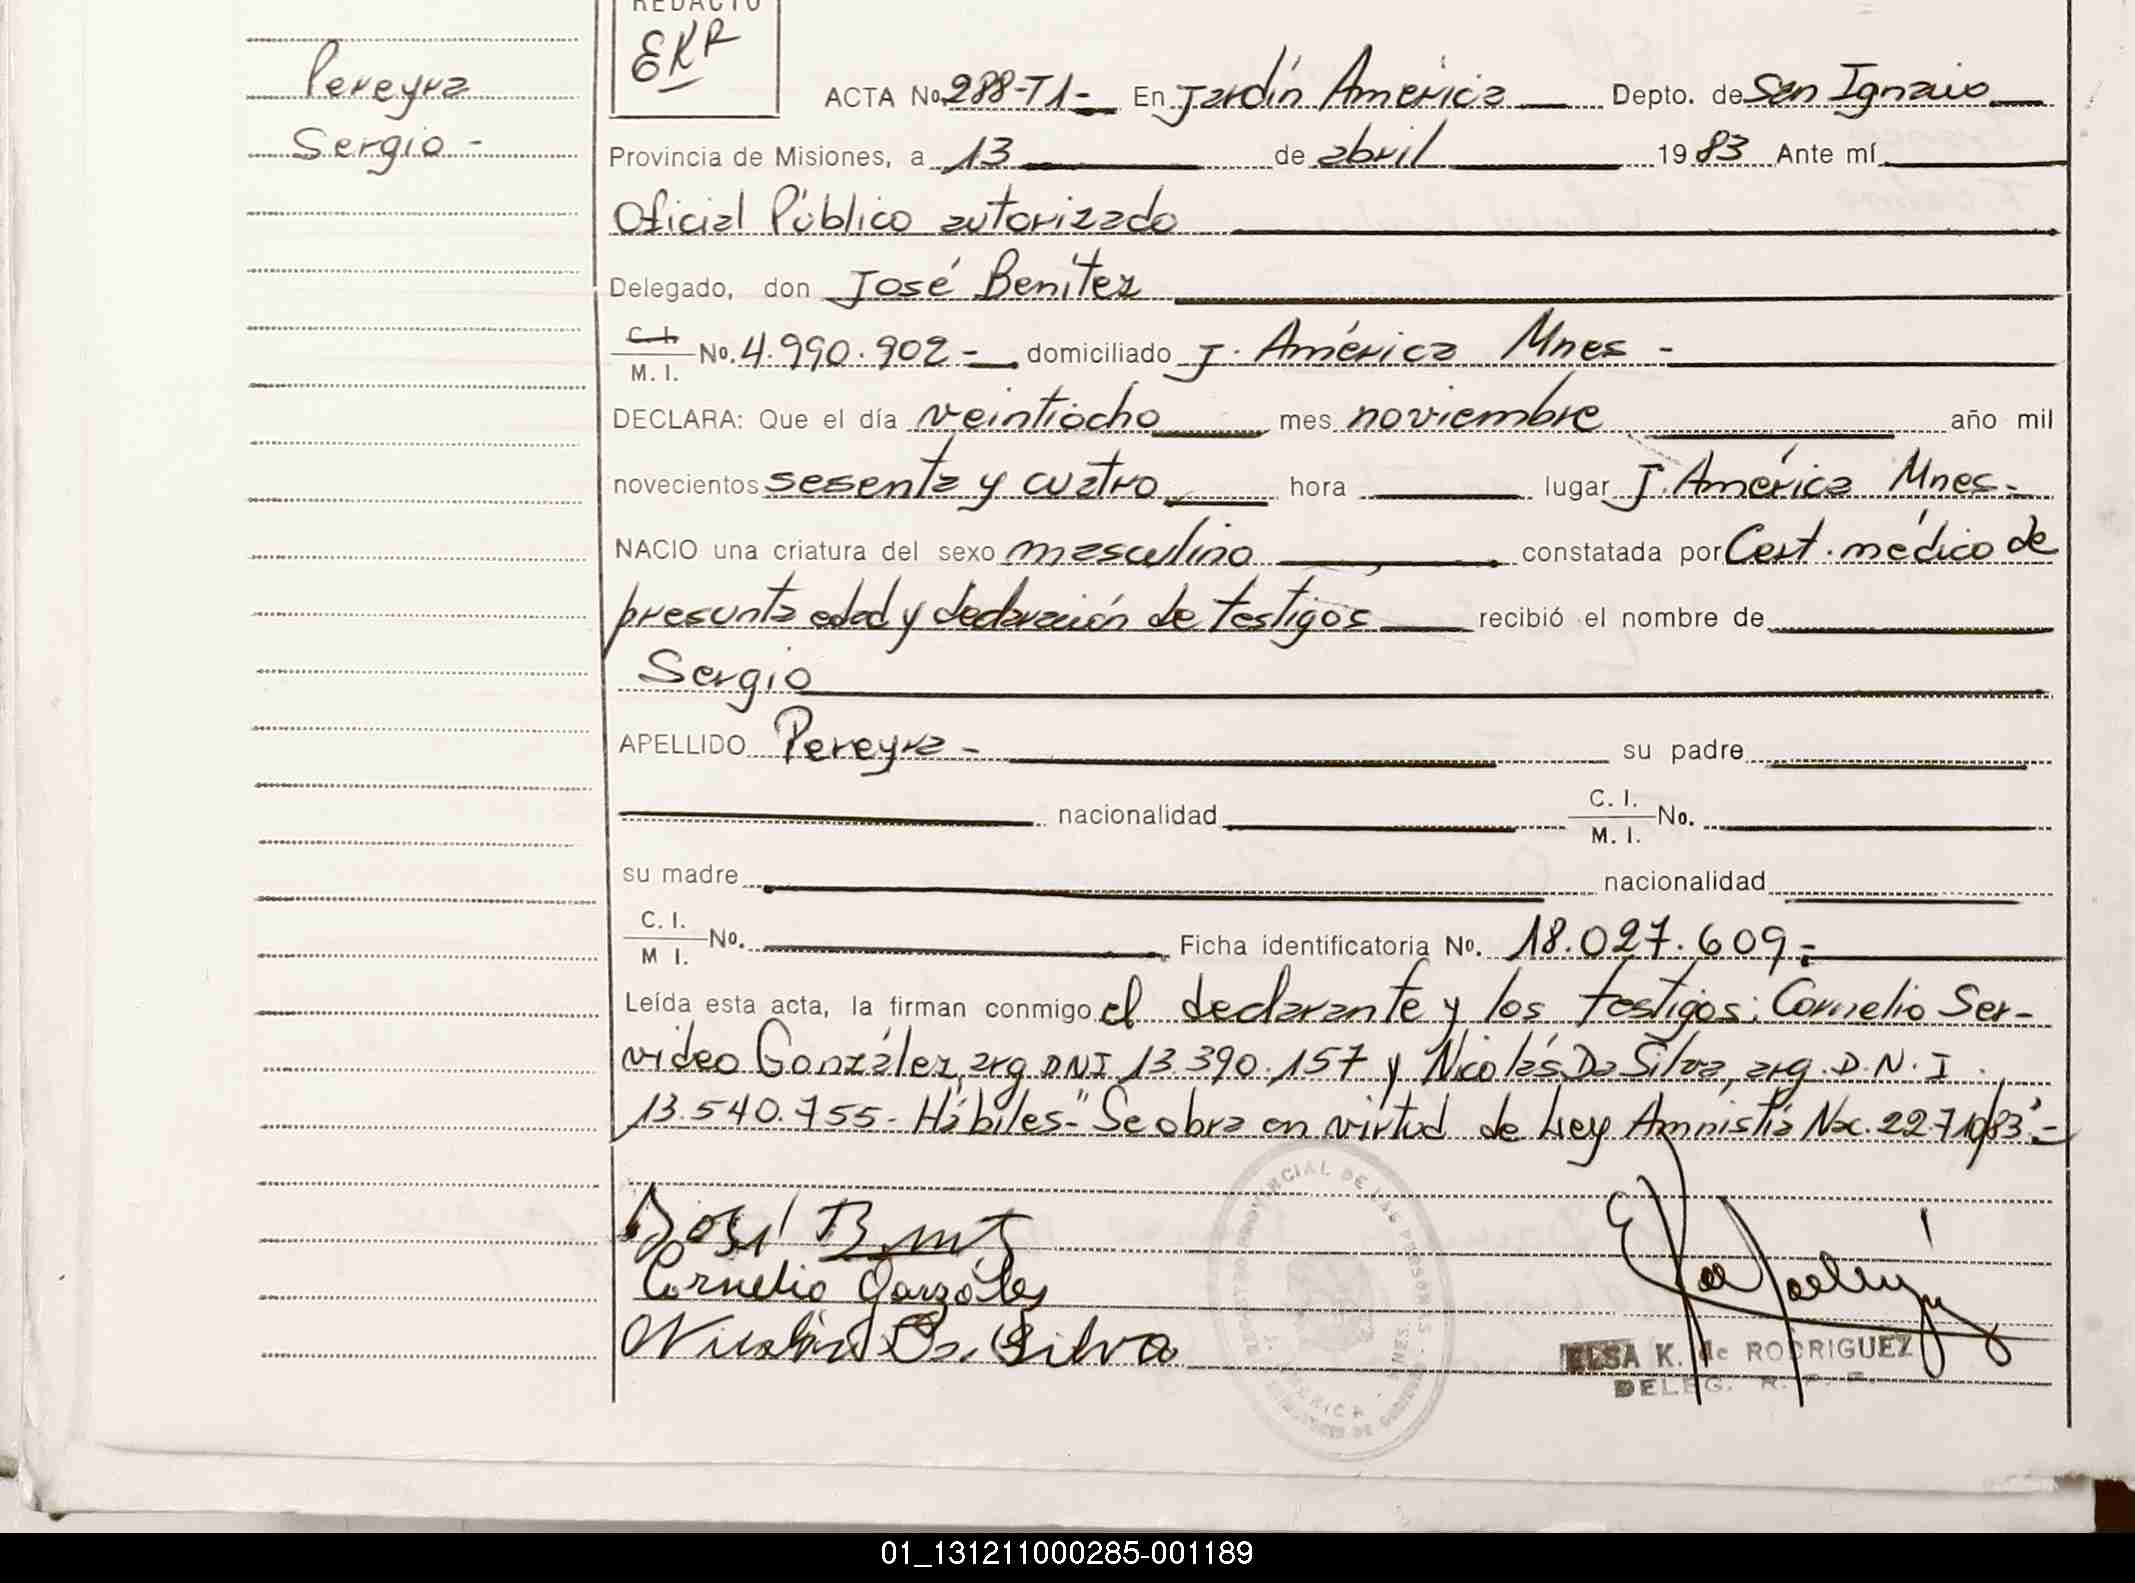 REDACTO
EKR
Pereyra
Sergio -
ACTA No. 288-T1- En Jardín América Depto. de San Ignacio
Provincia de Misiones, a 13 de abril 1983 Ante mí
Oficial Público autorizado
Delegado, don José Benítez
C. I.
M. I. No. 4.990.902 - domiciliado J. América Mnes -
DECLARA: Que el día veintiocho mes noviembre año mil
novecientos sesenta y cuatro hora lugar J. América Mnes -
NACIO una criatura del sexo masculino constatada por Cert. médico de
presunta edad y declaración de testigos recibió el nombre de
Sergio
APELLIDO Pereyra - su padre
nacionalidad C. I.
M. I. No.
su madre nacionalidad
C. I.
M I. No. Ficha identificatoria No. 18.027.609 -
Leída esta acta, la firman conmigo el declarante y los testigos: Cornelio Ser-
video González, arg DNI 13.390.157 y Nicolás Da Silva, arg. D.N.I.
13.540.755 - Hábiles - "Se obra en virtud de Ley Amnistía Nac. 22710/83" -
José
Cornelio Gonzáles
Nicolás Da Silva
REGISTRO PROVINCIAL DE LAS PERSONAS
ELSA K. de RODRIGUEZ
DELEG. R. P. P.
01_131211000285-001189